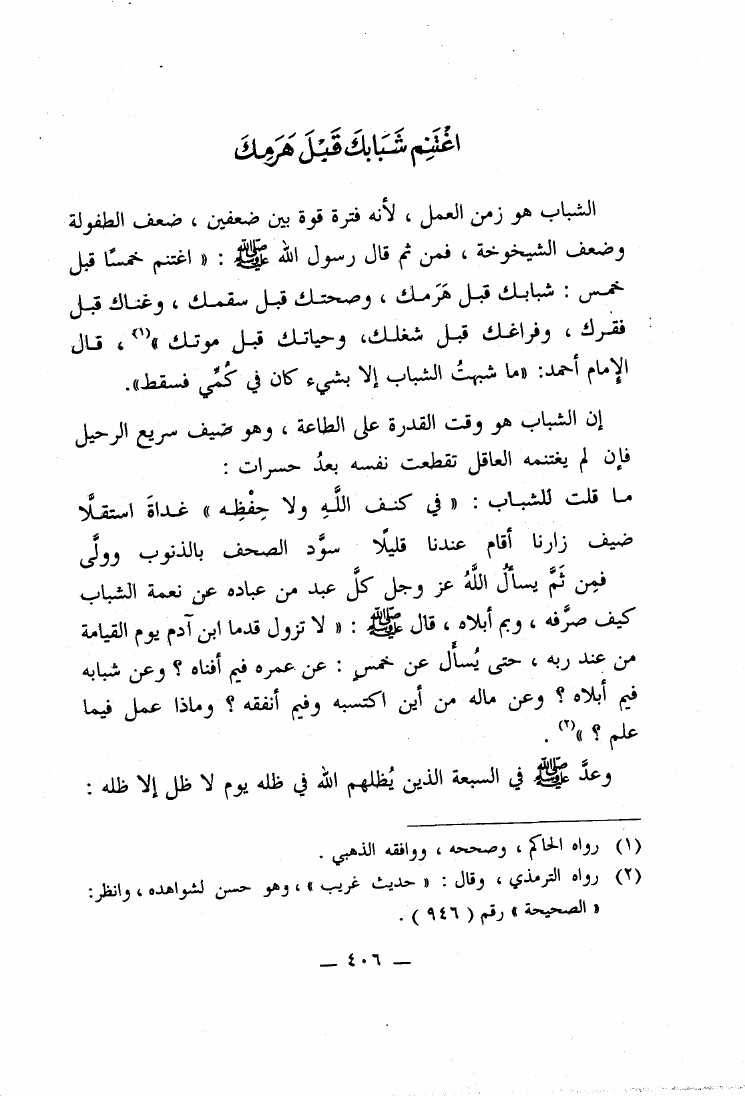 اغْتَنِم شَبَابكَ قَبْلَ هَرَمِكَ
الشباب هو زمن العمل ، لأنه فترة قوة بين ضعفين ، ضعف الطفولة
وضعف الشيخوخة ، فمن ثم قال رسول الله ﷺ : « اغتنم خمسًا قبل
خمس : شبابك قبل هَرَمك ، وصحتك قبل سقمك ، وغناك قبل
فقرك ، وفراغك قبل شغلك، وحياتك قبل موتك »(١) ، قال
الإمام أحمد: «ما شبهتُ الشباب إلا بشيء كان في كُمِّي فسقط».
إن الشباب هو وقت القدرة على الطاعة ، وهو ضيف سريع الرحيل
فإن لم يغتنمه العاقل تقطعت نفسه بعدُ حسرات :
ما قلت للشباب : « في كنف اللَّهِ ولا حِفْظِه » غداةَ استقلَّا
ضيف زارنا أقام عندنا قليلًا سوَّد الصحف بالذنوب وولَّى
فمِن ثَمَّ يسألُ اللَّهُ عز وجل كلَّ عبد من عباده عن نعمة الشباب
كيف صرَّفه ، وبم أبلاه ، قال ﷺ : « لا تزول قدما ابن آدم يوم القيامة
من عند ربه ، حتى يُسأَل عن خمسٍ : عن عمره فيم أفناه ؟ وعن شبابه
فيم أبلاه ؟ وعن ماله من أين اكتسبه وفيم أنفقه ؟ وماذا عمل فيما
علم ؟ »(٢) .
وعدَّ ﷺ في السبعة الذين يُظلهم الله في ظله يوم لا ظل إلا ظله :
(١) رواه الحاكم ، وصححه ، ووافقه الذهبي .
(٢) رواه الترمذي ، وقال : « حديث غريب » ، وهو حسن لشواهده ، وانظر:
« الصحيحة » رقم ( ٩٤٦ ) .
— ٤٠٦ —